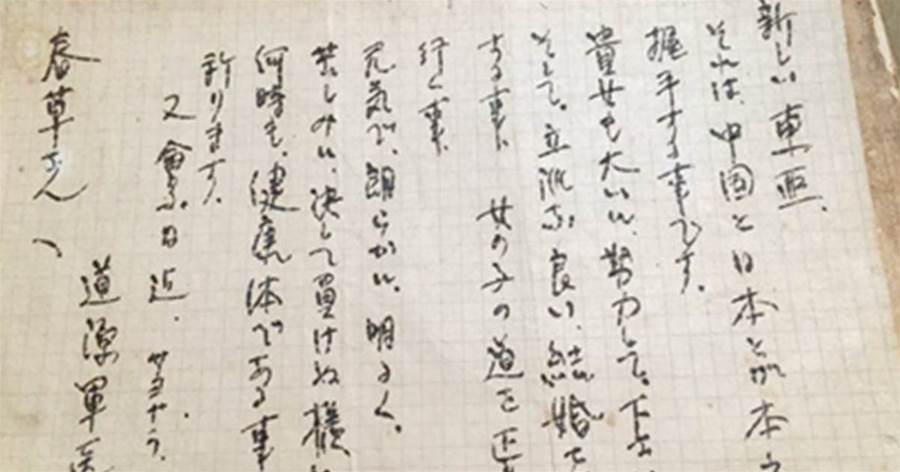 新しい東亜、
それは、中国と日本とが本
握手する事です。
貴女も大いに、努力して。下さ
そして。立派な良い、結婚で
する事、女の子の道を正
行く事、
元気で、朗らかに。明るく。
苦しみに、決して負けぬ様に
何時も、健康体である事
祈ります。
又會ふ日近。サヨナラ。
春草さんへ
道源軍医